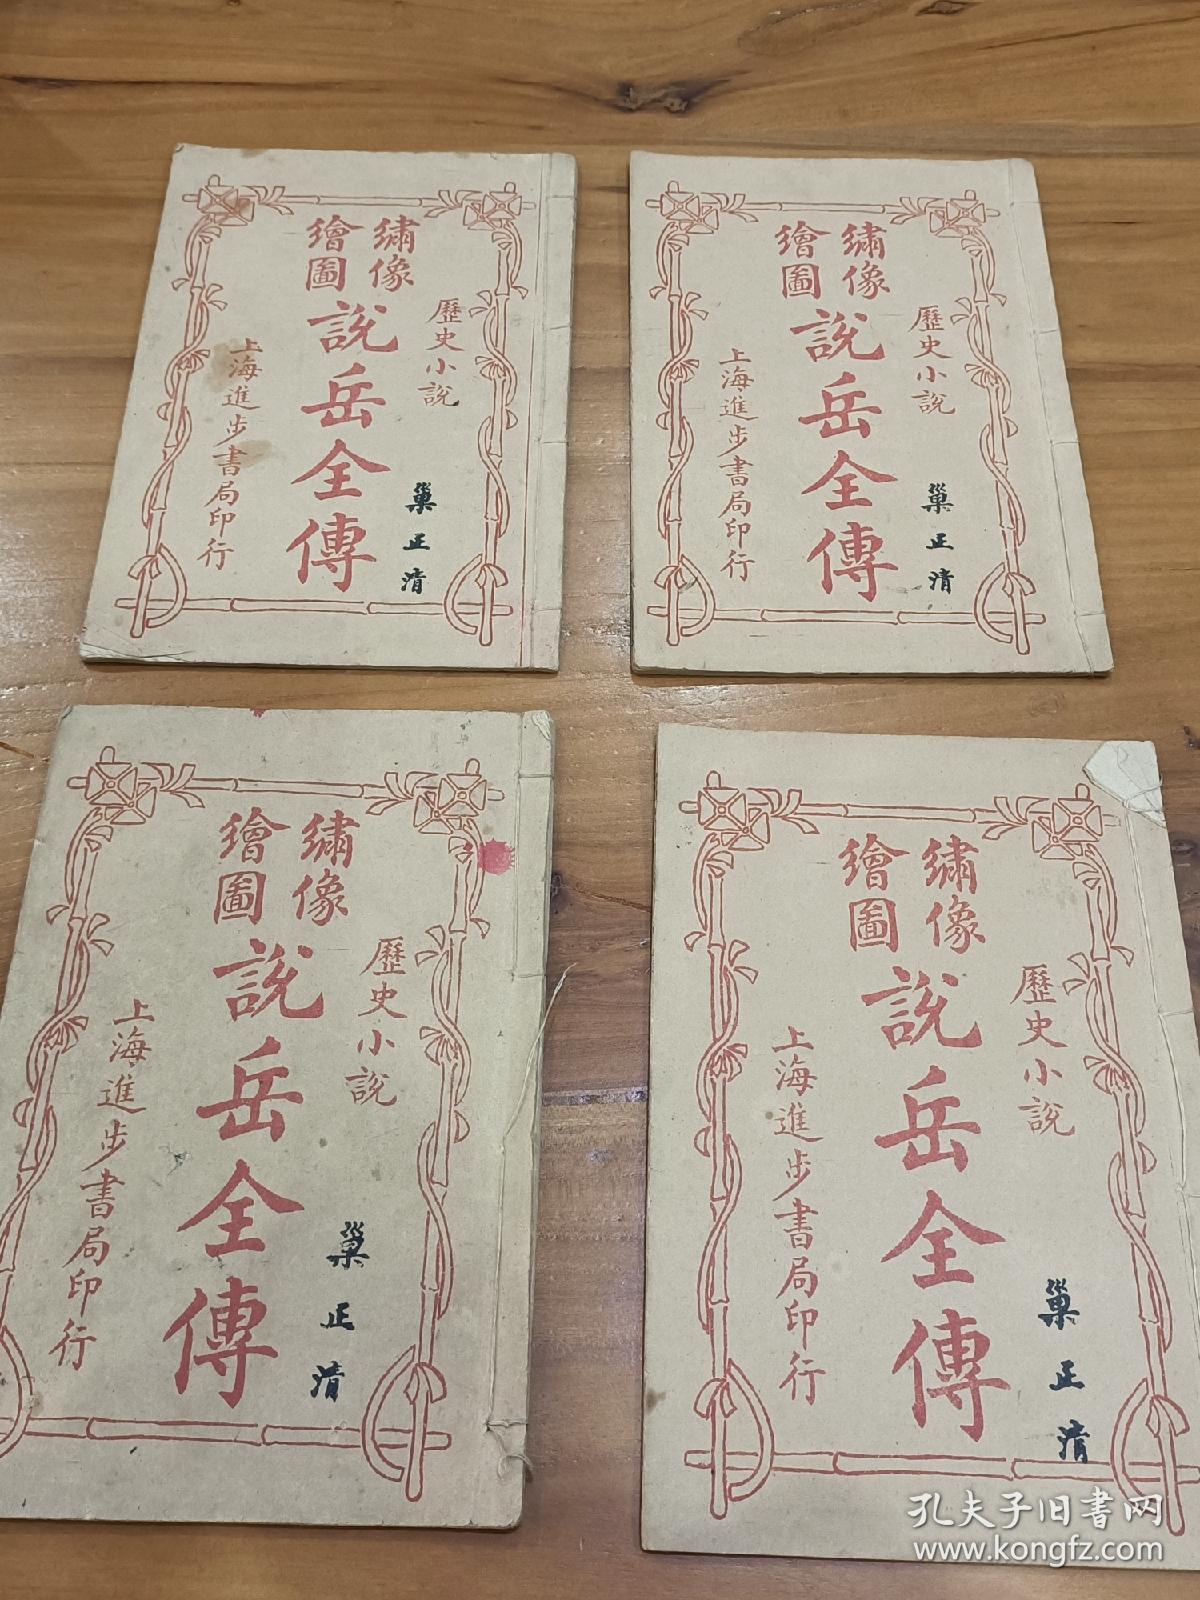 歷史小說
繡像
繪圖
說岳全傳
上海進步書局印行
巢正清
歷史小說
繡像
繪圖
說岳全傳
上海進步書局印行
巢正清
歷史小說
繡像
繪圖
說岳全傳
上海進步書局印行
巢正清
歷史小說
繡像
繪圖
說岳全傳
上海進步書局印行
巢正清
孔夫子旧书网
www.kongfz.com